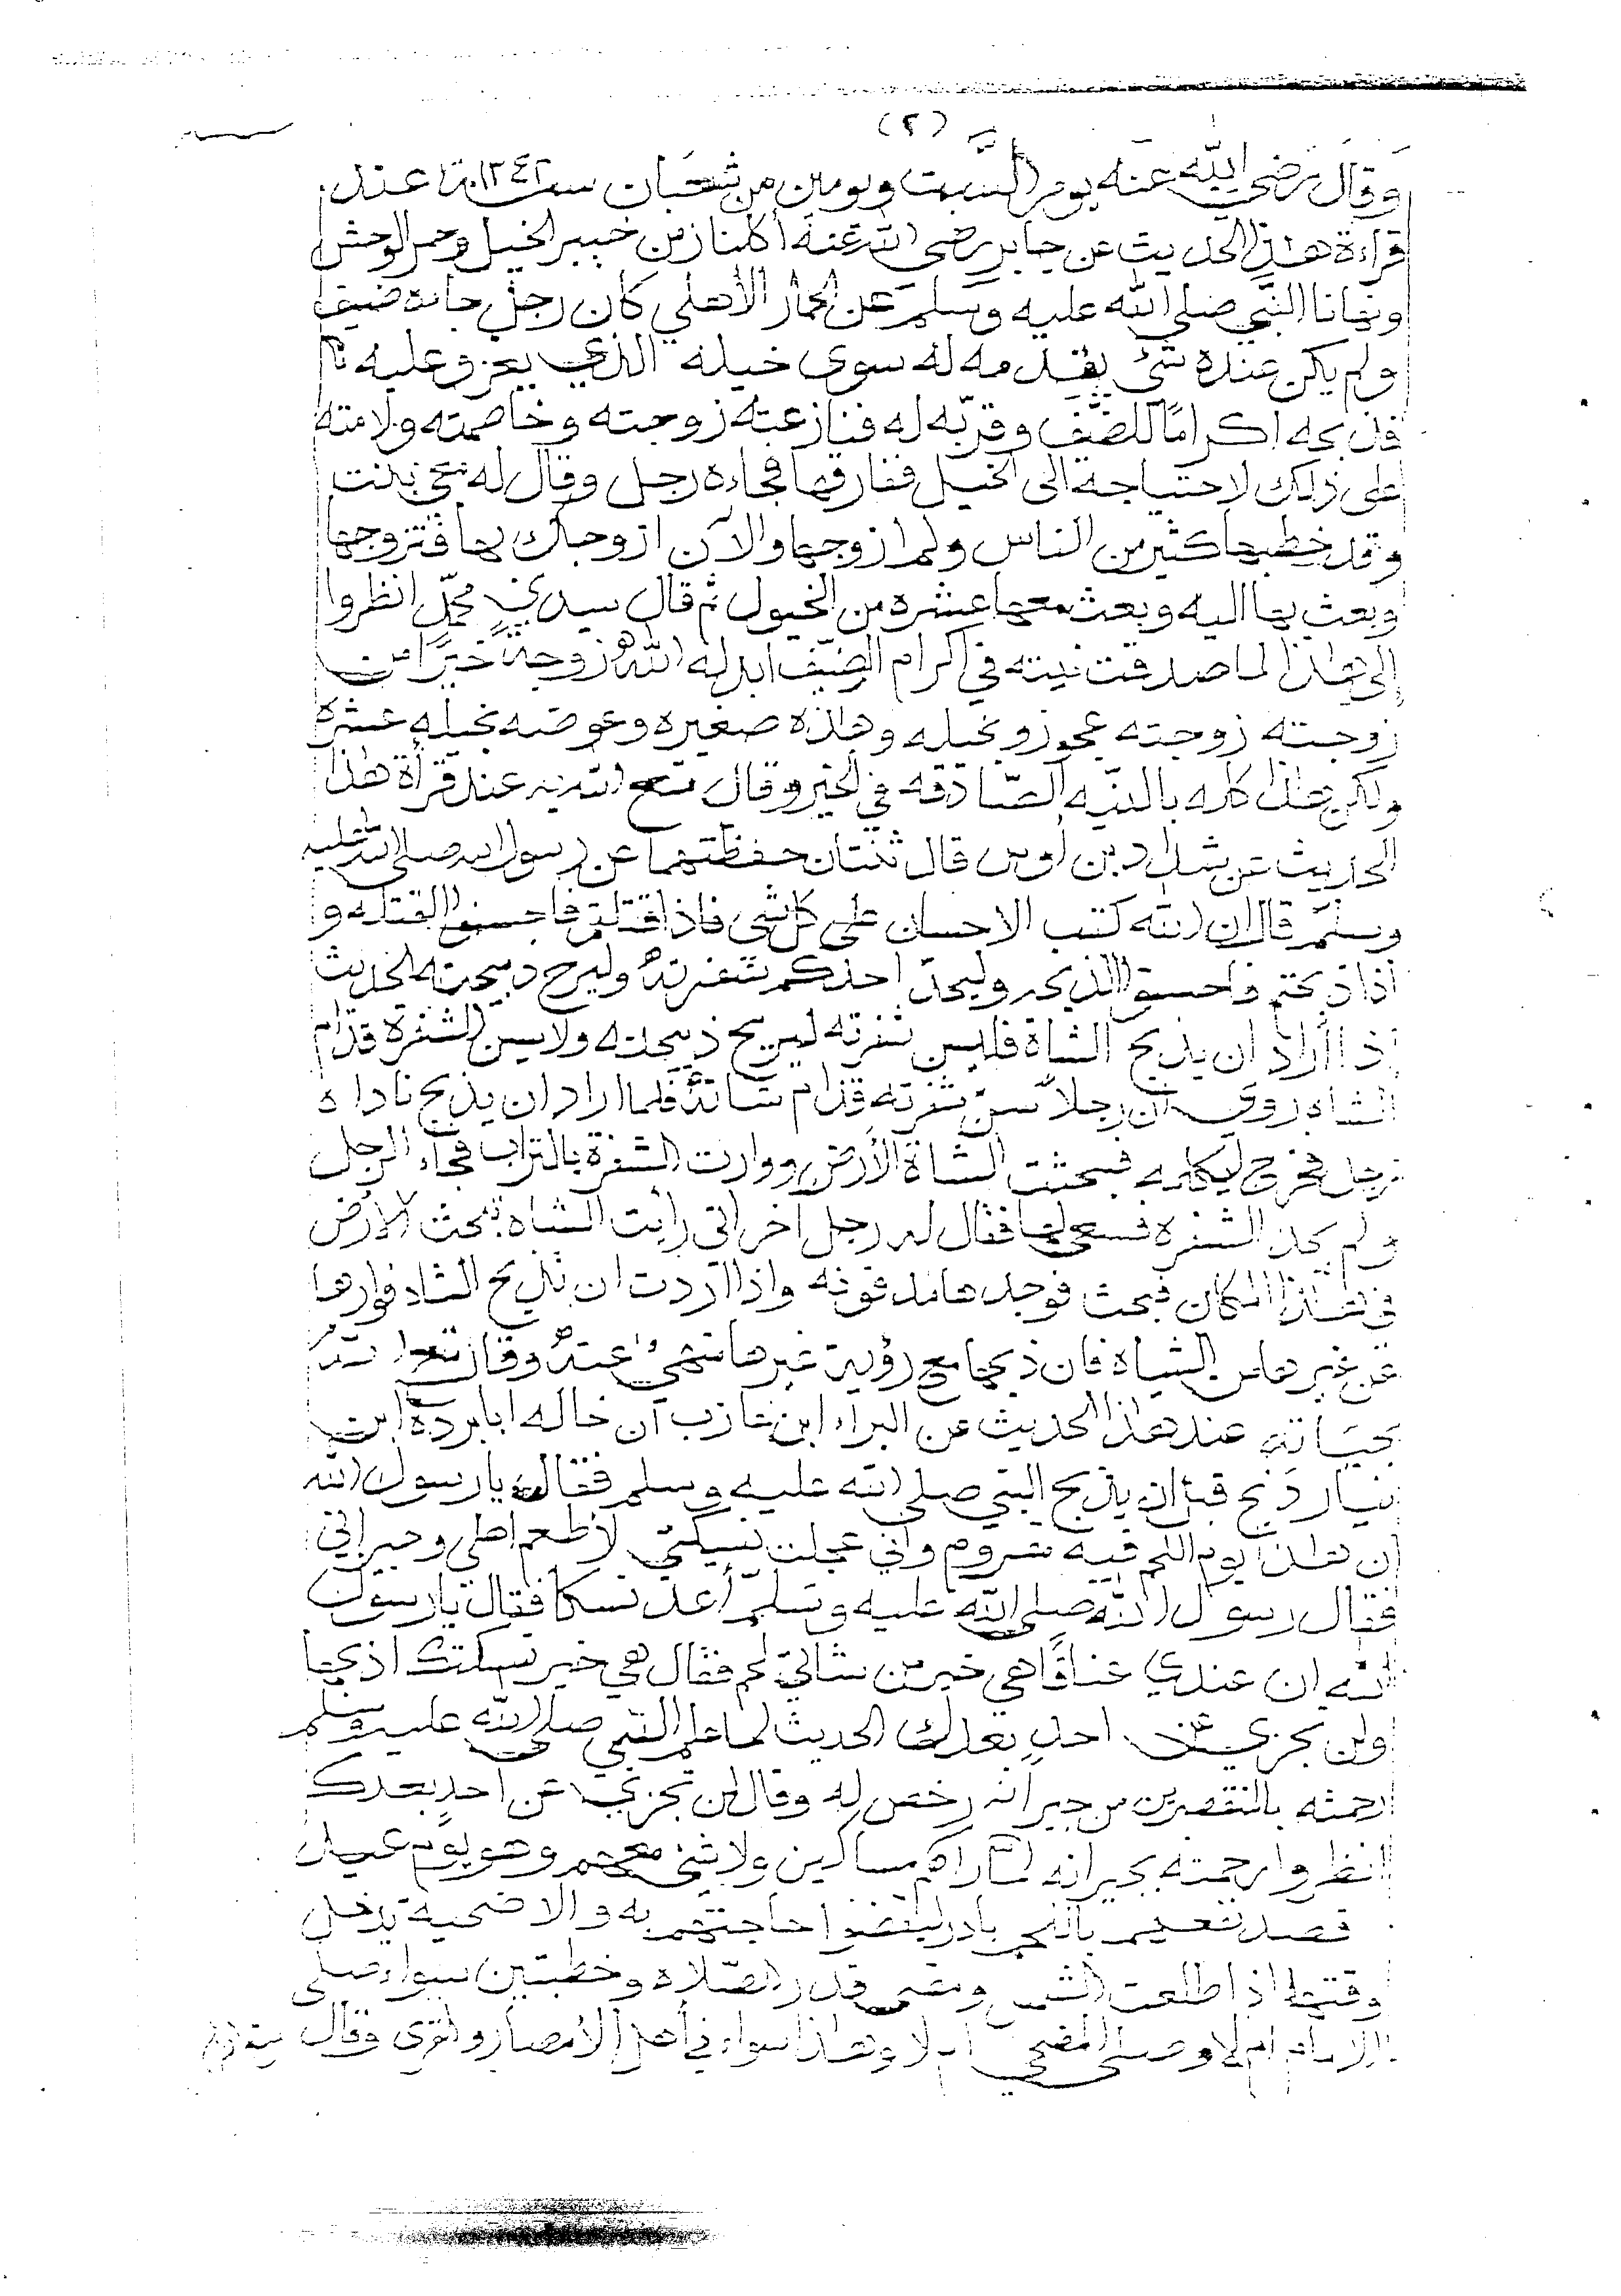 (٢)
وقال رضي الله عنه يوم السبت ويومين من شعبان سنة ١٣٤٢ عند
قراءة هاذا الحديث عن جابر رضي الله عنه أكلنا زمن خيبر الخيل وحمر الوحش
ونهانا النبي صلى الله عليه وسلم عن الحمار الأهلي كان رجل جاءه ضيف
ولم يكن عنده شئ يقدمه له سوى خيله الذي يغزو عليه
فذبحه اكراماً للضيف وقربه له فنازعته زوجته وخاصمته ولامته
على ذلك لاحتياجه الى الخيل ففارقها فجاءه رجل وقال له معي بنت
وقد خطبها كثير من الناس ولم ازوجها والآن ازوجك بها فتزوجها
وبعث بها اليه وبعث معها عشره من الخيول ثم قال سيدي محمد انظروا
إلى هاذا لما صدقت نيته في اكرام الضيف ابدله الله زوجة خيرا من
زوجته زوجته عجوز وبخيله وهاذه صغيره وعوضه بخيله عشره
ولكن هاذا كله بالنيه الصادقه في الخير وقال متع الله به عند قرأة هاذا
الحديث عن شداد بن أوس قال ثنتان حفظتهما عن رسول الله صلى الله عليه
وسلم قال ان الله كتب الاحسان على كل شي فاذا قتلتم فاحسنوا القتله و
اذا ذبحتم فاحسنوا الذبحه وليحد احدكم شفرته وليرح ذبيحته الحديث
إذا أراد ان يذبح الشاة فليسن شفرته ليريح ذبيحته ولا يسن الشفرة قدام
الشاه روي ان رجلاً سن شفرته قدام شاته فلما اراد ان يذبح ناداه
رجل فخرج ليكلمه فبحثت الشاة الأرض ووارت الشفرة بالتراب فجاء الرجل
ولم يجد الشفره فسعى لها فقال له رجل اخر اني رأيت الشاه تبحث الأرض
في هاذا المكان فبحث فوجدها مدفونه واذا اردت ان تذبح الشاه فوارها
عن غيرها من الشياه فان ذبحها مع رؤية غيرها منهي عنه وقال متع الله
بحياته عند هاذا الحديث عن البراء ابن عازب أن خاله ابا بردة ابن
نيار ذبح قبل ان يذبح النبي صلى الله عليه وسلم فقال يا رسول الله
إن هاذا يوم اللحم فيه مقروم واني عجلت نسيكتي لأطعم اهلي وجيراني
فقال رسول الله صلى الله عليه وسلم أعد نسكا فقال يا رسول
الله ان عندي عناقاً هي خير من شاتي لحم فقال هي خير نسيكتك اذبحها
ولن تجزي عن احد بعدك الحديث لما علم النبي صلى الله عليه وسلم
رحمته بالمقصرين من جيرانه رخص له وقال لن تجزي عن احد بعدك
انظروا رحمته بجيرانه لما رآهم مساكين ولا شئ معهم وهو يوم عيد
قصد نفعهم باللحم بادر ليقضوا حاجتهم به والاضحية يدخل
وقتها اذا طلعت الشمس ومضى قدر الصلاه وخطبتين سواء صلى
الامام ام لا وصلى المضحي ام لا وهاذا سواء في أهل الأمصار والقرى وقال